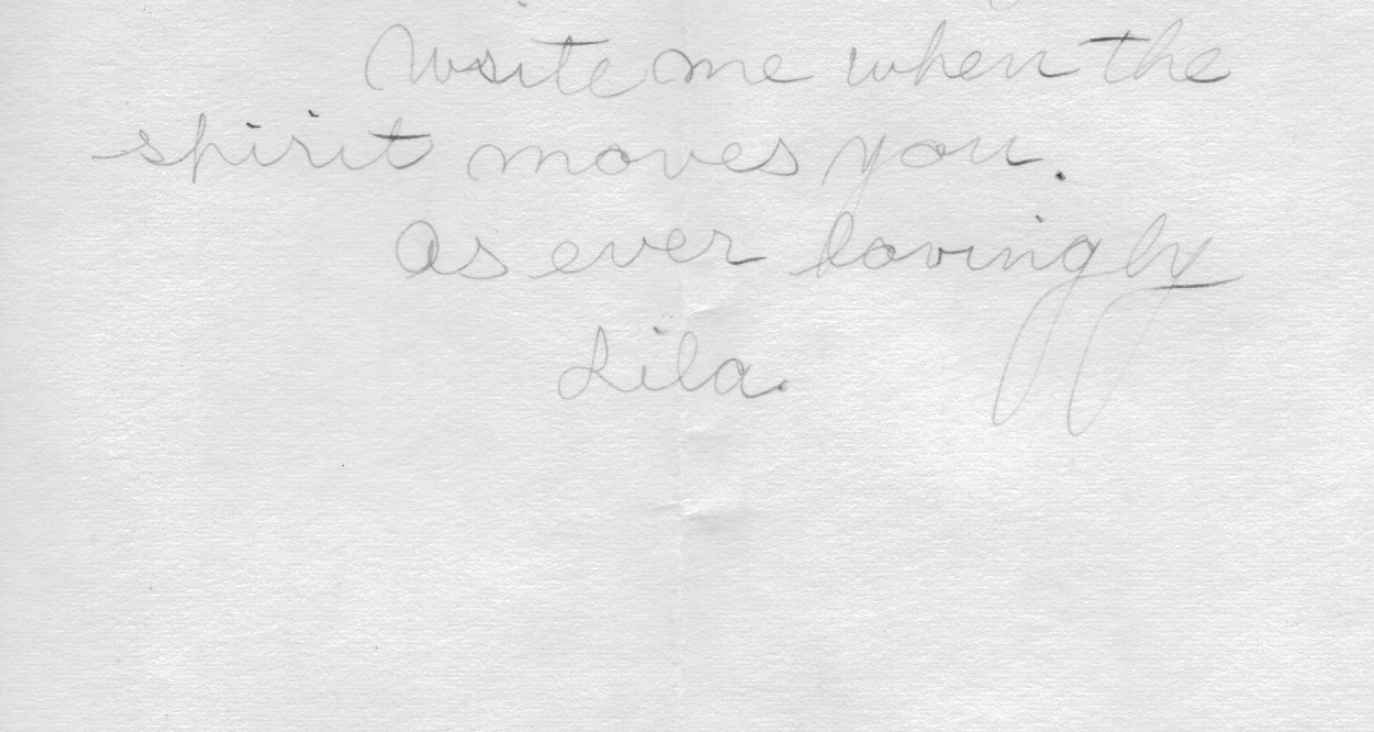 Write me when the
spirit moves you.
As ever lovingly
Lila.